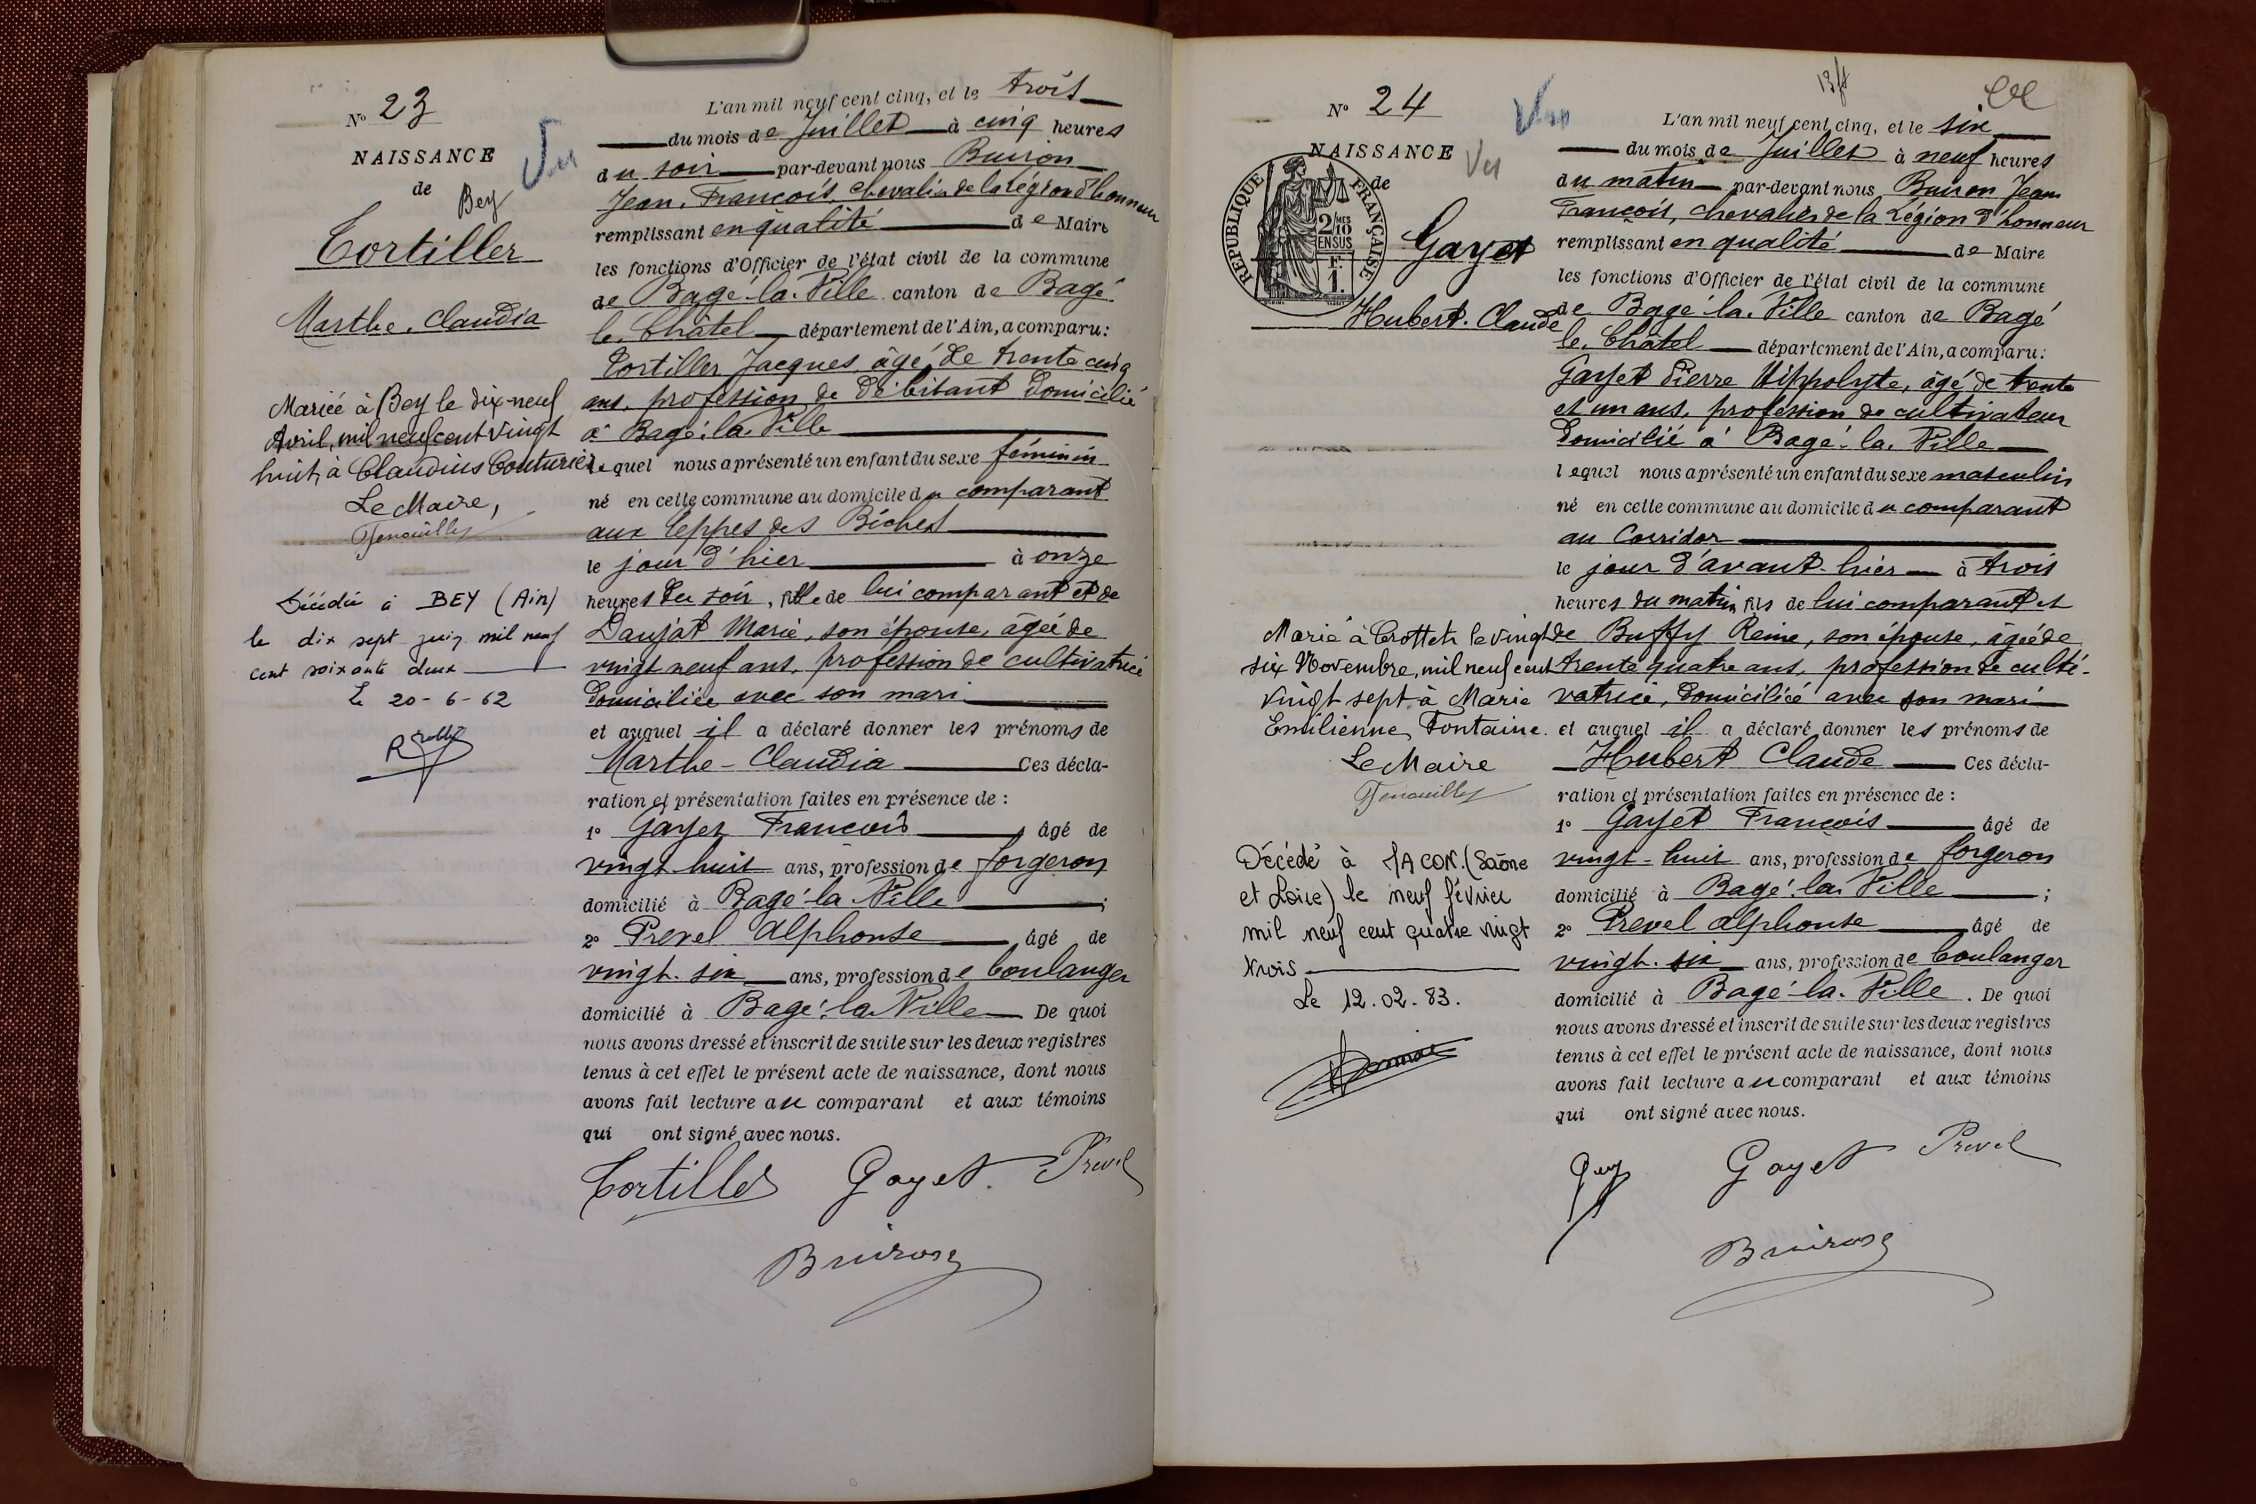 N° 23
NAISSANCE
de
Bey
Vu
Tortiller
Marthe. Claudia
Mariée à Bey le dix-neuf
Avril, mil neuf cent vingt
huit, à Claudius Couturier
Le Maire,
Décédée à BEY (Ain)
le dix sept juin mil neuf
cent soixante deux
Le 20-6-62
L'an mil neuf cent cinq, et le trois
du mois de Juillet à cinq heures
du soir par-devant nous Buiron
Jean, François, chevalier de la légion d'honneur
remplissant en qualité de Maire
les fonctions d'Officier de l'état civil de la commune
de Bagé-la-Ville canton de Bagé
le Châtel département de l'Ain, a comparu:
Tortiller Jacques, âgé de trente cinq
ans, profession de débitant domicilié
à Bagé-la-Ville
lequel nous a présenté un enfant du sexe féminin
né en cette commune au domicile du comparant
aux Teppes des Biches
le jour d'hier à onze
heures du soir, fille de lui comparant et de
Daujat Marie, son épouse, âgée de
vingt neuf ans, profession de cultivatrice
domiciliée avec son mari
et auquel il a déclaré donner les prénoms de
Marthe-Claudia Ces décla-
ration et présentation faites en présence de :
1° Gayet François, âgé de
vingt-huit ans, profession de forgeron
domicilié à Bagé-la-Ville ;
2° Prevel Alphonse, âgé de
vingt-six ans, profession de boulanger
domicilié à Bagé-la-Ville De quoi
nous avons dressé et inscrit de suite sur les deux registres
tenus à cet effet le présent acte de naissance, dont nous
avons fait lecture au comparant et aux témoins
qui ont signé avec nous.
Tortiller Gayet. Prevel
Buiron
N° 24
NAISSANCE
de
Vu
Vu
REPUBLIQUE FRANÇAISE
2/10 MES
EN SUS
F.
1.
Gayet
Hubert. Claude
Marié à Crottet le vingt
six Novembre, mil neuf cent
vingt sept, à Marie
Emilienne Fontaine.
Le Maire
Décédé à MACON (Saône
et Loire) le neuf février
mil neuf cent quatre vingt
trois
Le 12.02.83.
L'an mil neuf cent cinq, et le six
du mois de Juillet à neuf heures
du matin par-devant nous Buiron Jean
François, chevalier de la Légion d'honneur
remplissant en qualité de Maire
les fonctions d'Officier de l'état civil de la commune
de Bagé-la-Ville canton de Bagé
le Châtel département de l'Ain, a comparu:
Gayet Pierre Hippolyte, âgé de trente
et un ans, profession de cultivateur
domicilié à Bagé-la-Ville
lequel nous a présenté un enfant du sexe masculin
né en cette commune au domicile du comparant
au Corridor
le jour d'avant-hier à trois
heures du matin, fils de lui comparant et
de Buffy Reine, son épouse, âgée de
trente quatre ans, profession de culti-
vatrice, domiciliée avec son mari
et auquel il a déclaré donner les prénoms de
Hubert Claude Ces décla-
ration et présentation faites en présence de :
1° Gayet François âgé de
vingt-huit ans, profession de forgeron
domicilié à Bagé-la-Ville ;
2° Prevel Alphonse âgé de
vingt-six ans, profession de boulanger
domicilié à Bagé-la-Ville. De quoi
nous avons dressé et inscrit de suite sur les deux registres
tenus à cet effet le présent acte de naissance, dont nous
avons fait lecture au comparant et aux témoins
qui ont signé avec nous.
Gayet Prevel
Buiron